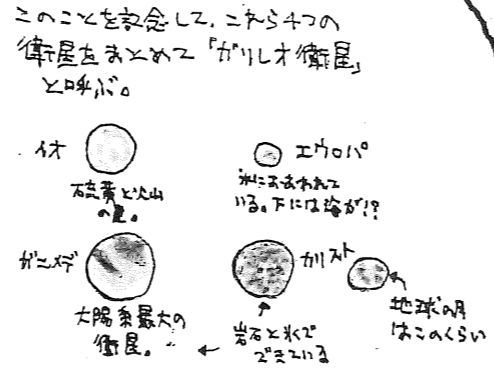 このことを記念して、これら4つの
衛星をまとめて「ガリレオ衛星」
と呼ぶ。
イオ
硫黄と火山
の星。
エウロパ
氷におおわれて
いる。下には海が!?
ガニメデ
太陽系最大の
衛星。
カリスト
岩石と氷で
できている
地球の月
はこのくらい